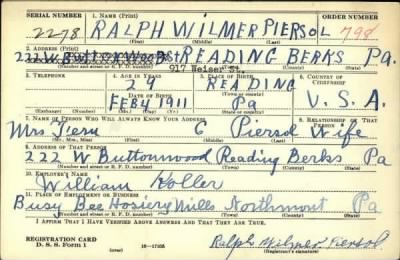 SERIAL NUMBER 1. NAME (Print) ORDER NUMBER
2278 RALPH WILMER PIERSOL 798
(First) (Middle) (Last)
2. ADDRESS (Print)
222 W Buttonwood St READING BERKS Pa.
917 Weiser St.
(Number and street or R. F. D. number) (Town) (County) (State)
3. TELEPHONE 4. AGE IN YEARS 5. PLACE OF BIRTH 6. COUNTRY OF CITIZENSHIP
29 READING
DATE OF BIRTH (Town or county)
FEB 4 1911 Pa U.S.A.
(Mo.) (Day) (Yr.) (State or country)
7. NAME OF PERSON WHO WILL ALWAYS KNOW YOUR ADDRESS 8. RELATIONSHIP OF THAT PERSON
Mrs G Piersol Wife
(Mr., Mrs., Miss) (First) (Middle) (Last)
9. ADDRESS OF THAT PERSON
222 W Buttonwood Reading Berks Pa
(Number and street or R. F. D. number) (Town) (County) (State)
10. EMPLOYER'S NAME
William Holler
11. PLACE OF EMPLOYMENT OR BUSINESS
Busy Bee Hosiery Mills Northmont Pa
(Number and street or R. F. D. number) (Town) (County) (State)
I AFFIRM THAT I HAVE VERIFIED ABOVE ANSWERS AND THAT THEY ARE TRUE.
REGISTRATION CARD
D. S. S. Form 1 16—17105 Ralph Wilmer Piersol
(Registrant's signature)